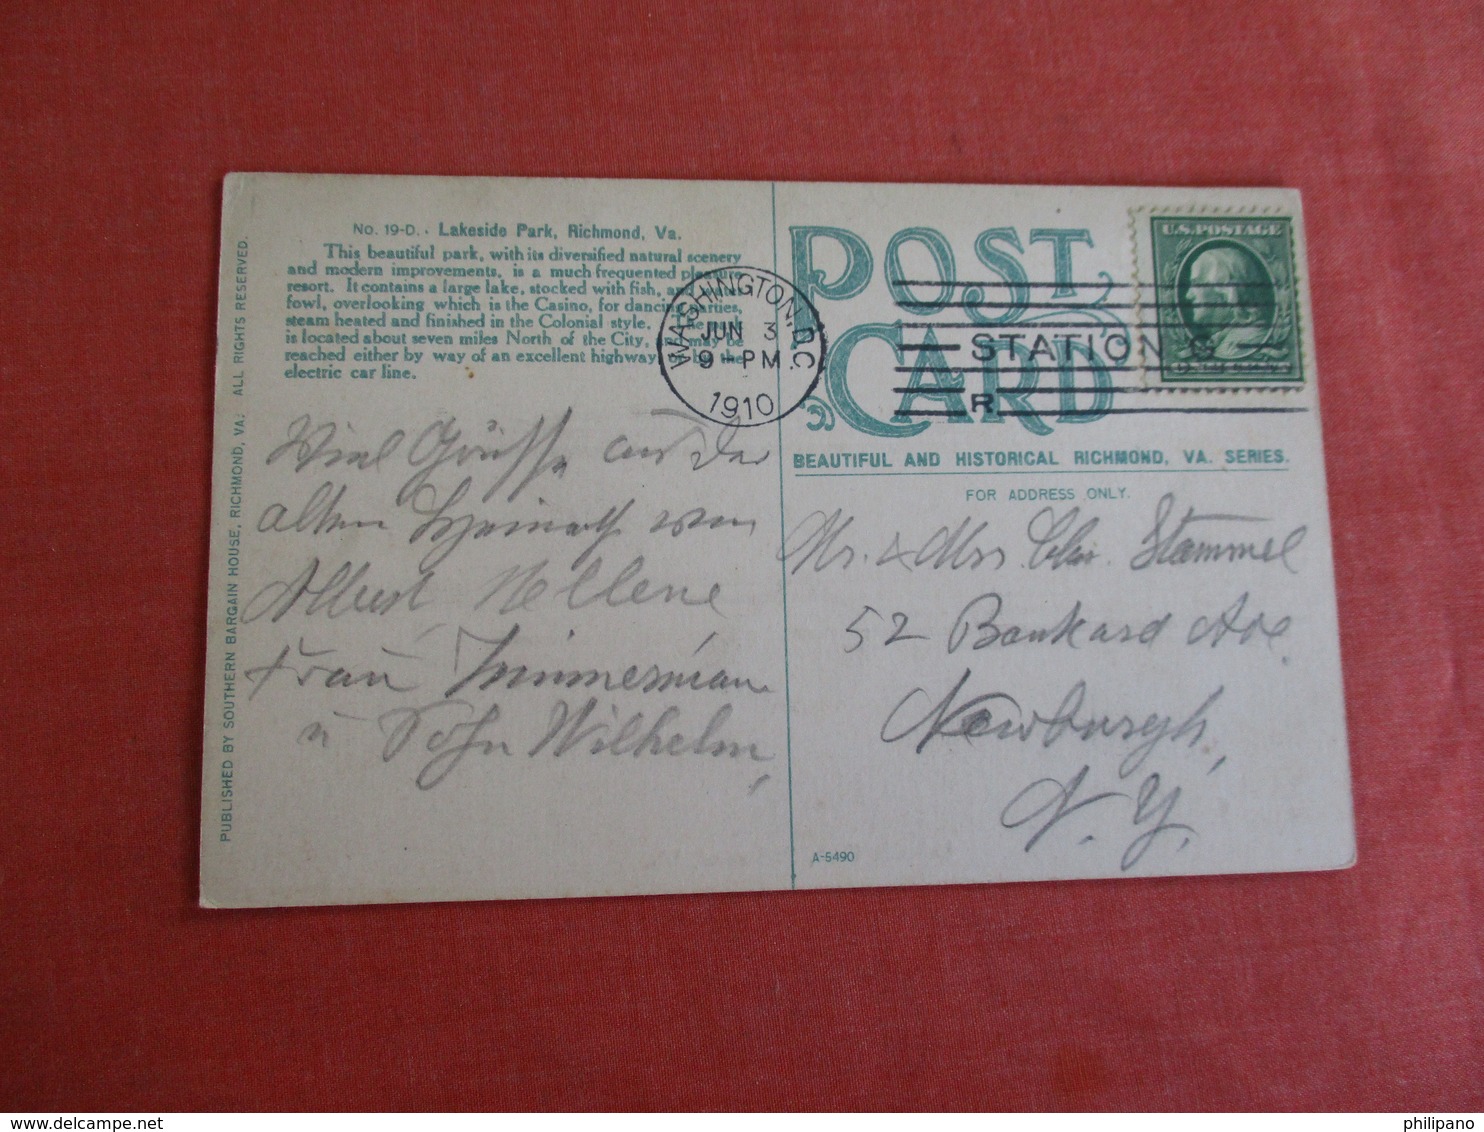 No. 19-D. Lakeside Park, Richmond, Va.
This beautiful park, with its diversified natural scenery
and modern improvements, is a much frequented pleasure
resort. It contains a large lake, stocked with fish, and
fowl, overlooking which is the Casino, for dancing parties,
steam heated and finished in the Colonial style.
is located about seven miles North of the City, may be
reached either by way of an excellent highway, or by the
electric car line.
PUBLISHED BY SOUTHERN BARGAIN HOUSE, RICHMOND, VA. ALL RIGHTS RESERVED.
WASHINGTON, D.C.
JUN 3
9-PM
1910
STATION G
R
U.S. POSTAGE
POST
CARD
BEAUTIFUL AND HISTORICAL RICHMOND, VA. SERIES.
FOR ADDRESS ONLY.
Viel Grüsse aus der
alten Heimath von
Albert Hellene
Frau Zimmerman
u Sohn Wilhelm,
Mr. & Mrs Stammel
52 Bankard Ave
Newburgh,
N.Y.
A-5490
www.delcampe.net
philipano